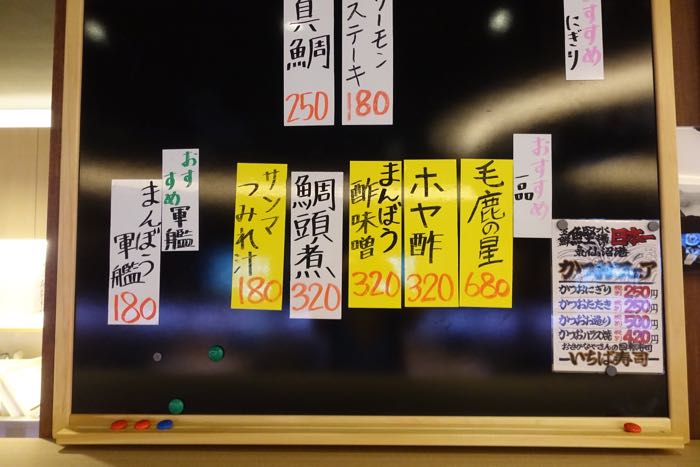 おすすめ
にぎり
サーモン
ステーキ
180
真鯛
250
おすすめ
一品
毛鹿の星
680
ホヤ酢
320
まんぼう
酢味噌
320
鯛頭煮
320
サンマ
つみれ汁
180
おすすめ
軍艦
まんぼう
軍艦
180
日本一
気仙沼港
かつおフェア
かつおにぎり 250円
かつおたたき 250円
かつお造り 500円
かつおハラス焼 420円
おさかなやさんの回転寿司
いちば寿司